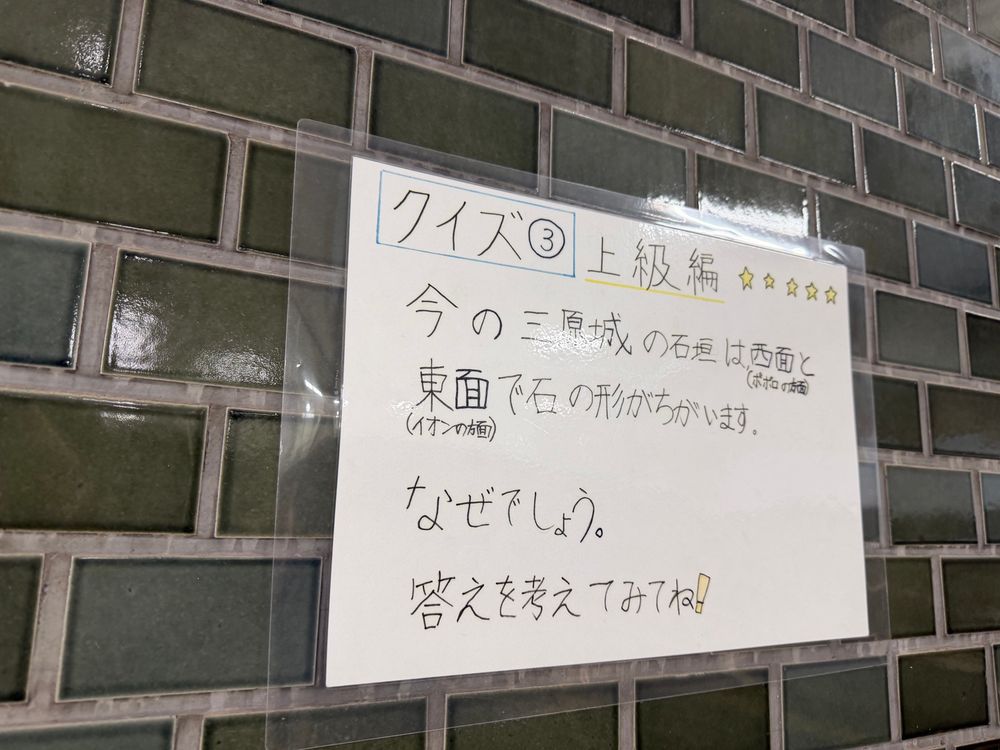 クイズ③ 上級編
今の三原城の石垣は西面と
(ポポロの方面)
東面で石の形がちがいます。
(イオンの方面)
なぜでしょう。
答えを考えてみてね!